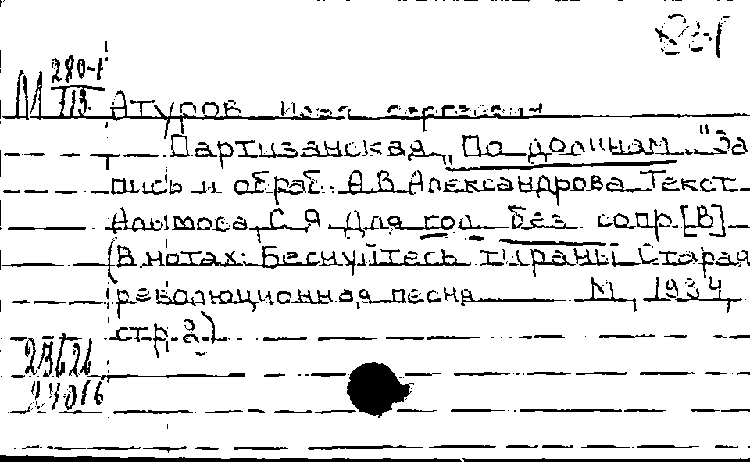 М 280-1
113
Атуров Илья Сергеевич
Партизанская „По долинам..." За
пись и обраб. А.В. Александрова Текст
Алымова, С.Я. Для гол. без сопр. [В]
(В нотах: Беснуйтесь тираны Старая
революционная песня М, 1934,
стр. 2)
23626
24016